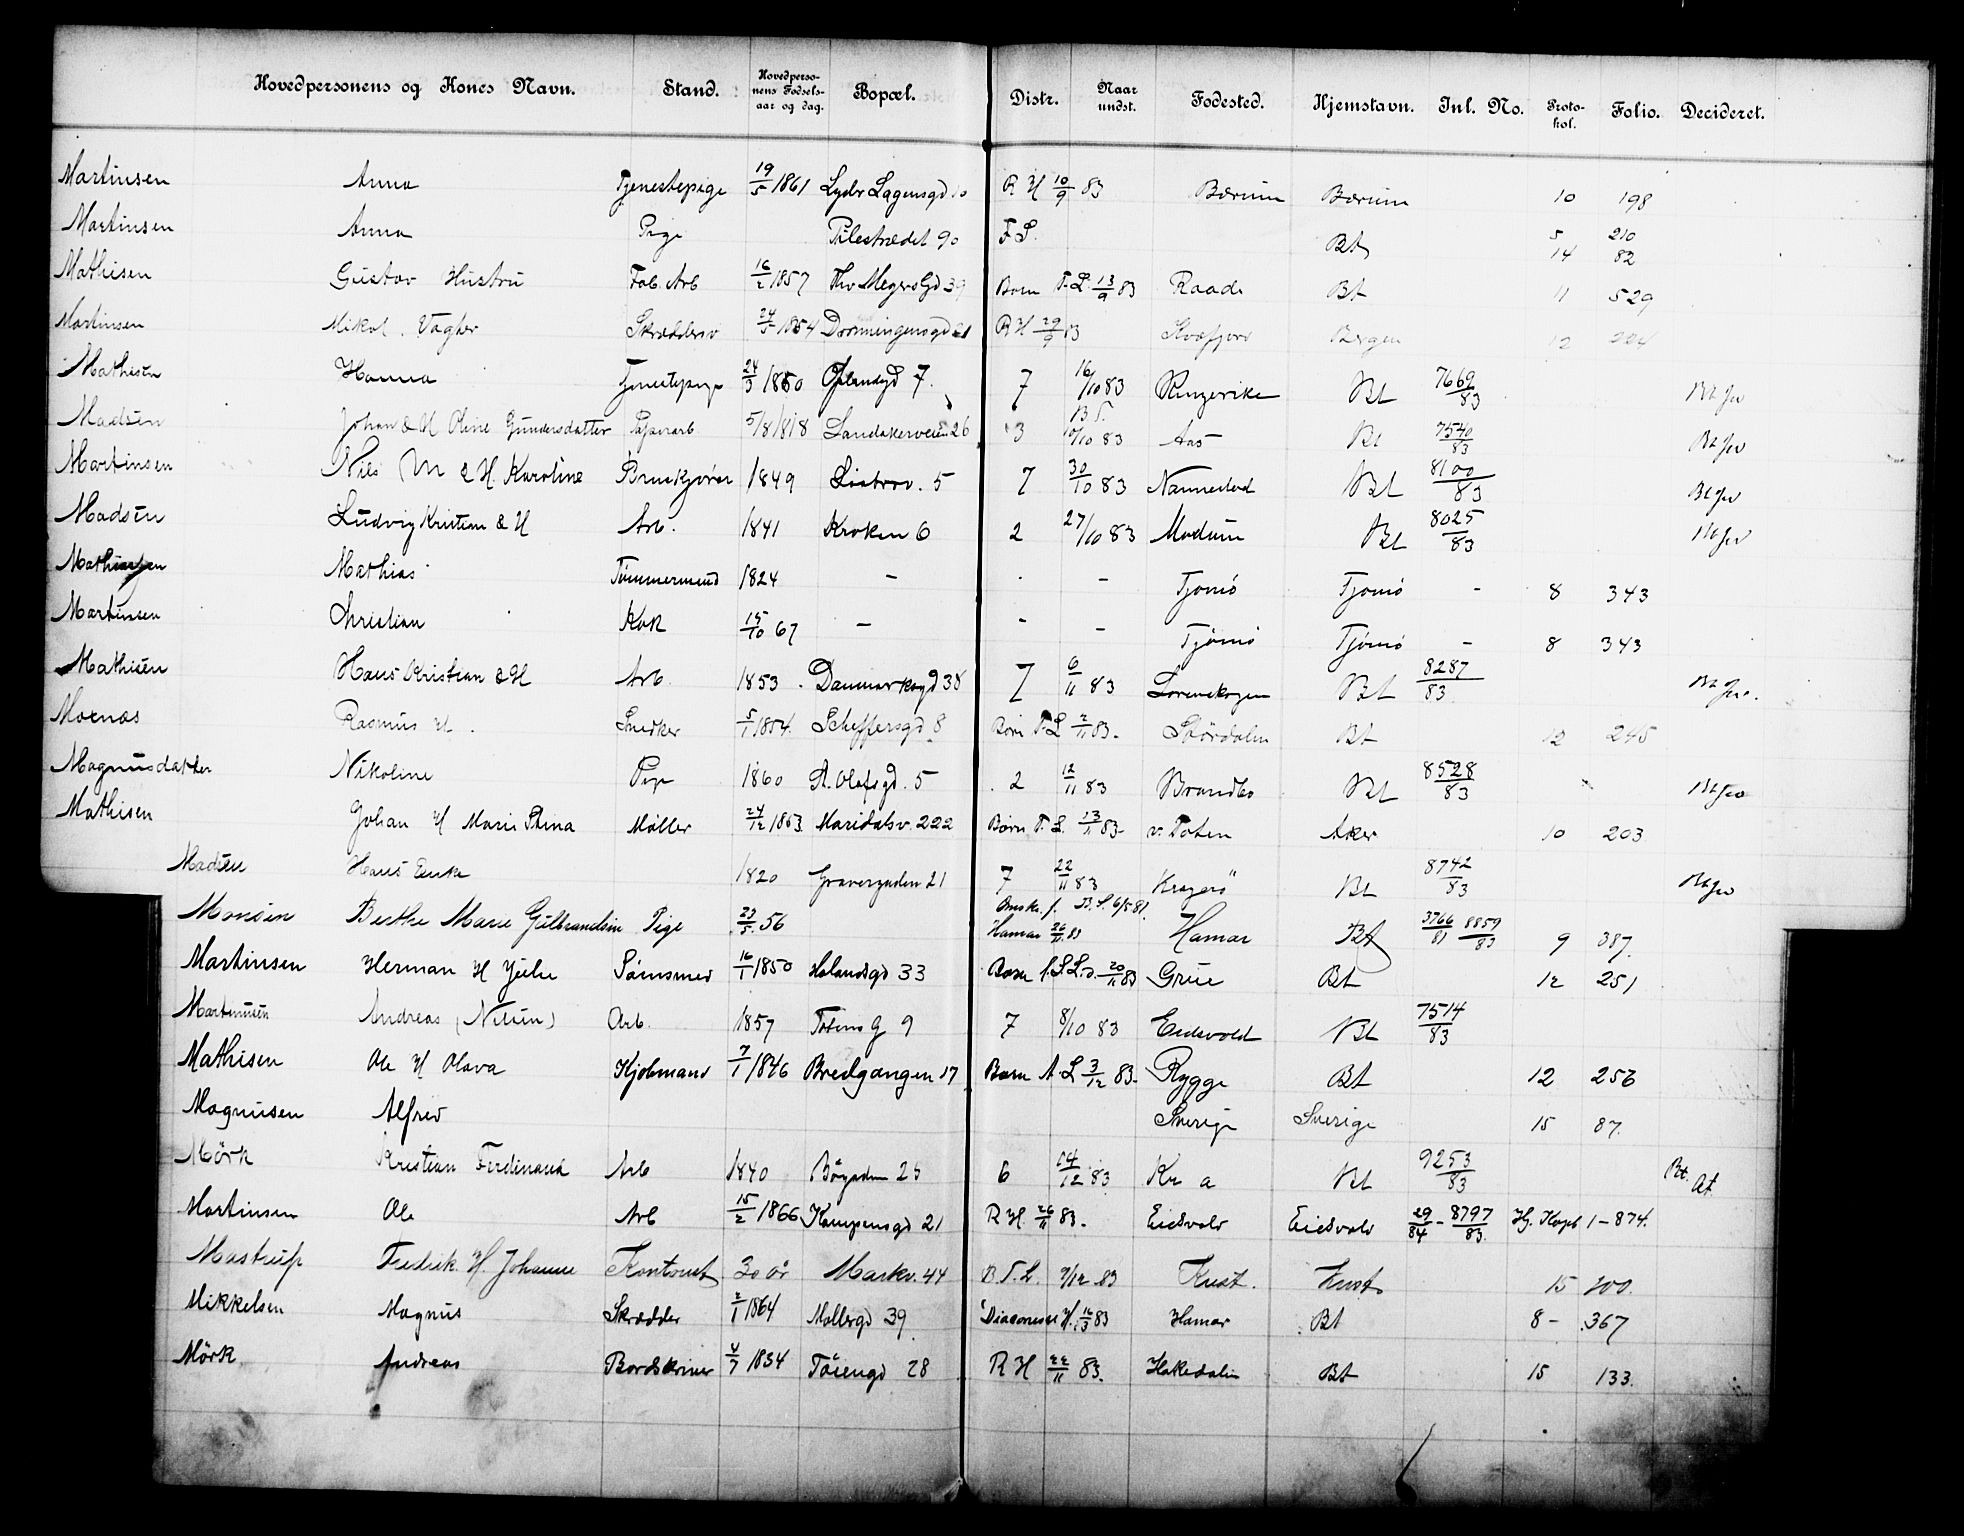 Hovedpersonens og Kones Navn. Stand. Hovedpersonens Fødselsaar og dag. Bopæl. Distr. Naar undst. Fødested. Hjemstavn. Inl. No. Protokol. Folio. Decideret.
Martinsen Anna Tjenestepige 19/5 1861 R H 10/9 83 Bærum Bærum 10 198
Martinsen Anna Pige Pilestrædet 90 F S. Bt 5 210
14 82
Mathisen Gustav Hustru Fab. Arb 16/2 1857 Thv Meyers Gd 39 Børn F. L. 13/9 83 Raade Bt 11 529
Martinsen Mikal. Skrædders 24/5 1854 Dronningensgd 21 R H 29/9 83 Kvæfjord Bergen 12
Mathisen Hanna Tjenestepige 24/3 1860 7. 7 16/10 83 Ringerike Bt 7669/83 Bt Jv
Madsen Johan & H Oline Gundersdatter Papirarb 5/8 1818 Sandakerveien 26 3 10/10 83 Aas Bt 7540/83 Bt Jv
Martinsen Nils M & H. Karoline 1849 5 7 30/10 83 Nannestad Bt 8100/83 Bt Jv
Madsen Ludvig Kristian & H Arb. 1841 Kroken 6 2 27/10 83 Modum Bt 8025/83 Bt Jv
Mathias Tømmermand 1824 – – Tjømø Tjømø - 8 343
Martinsen Christian Kok 15/10 67 – - – Tjømø Tjømø – 8 343
Mathisen Hans Kristian & H Arb. 1853. Danmarksgd 38 7 6/11 83 Lørenskogen Bt 8287/83 Bt Jv.
Moenæs Rasmus H. Snedker 5/1 1854. Scheffersgd 8 Børn F. L 2/11 83. Stördalen Bt 12 245
Magnusdatter Nikoline Pige 1860 St. Olafsgd. 5 2 12/11 83 Brandbo Bt 8528/83 Bt Jv
Mathisen Johan H Marie Stina Møller 24/12 1853 Maridalsv. 222 Børn F. L. 13/11 83 v. Toten Aker 10 203
Madsen Hans 1820 Gravergaden 21 7 22/11 83 Kragerö Bt 8742/83 Bt Jv
Monsen Berthe Marie Gulbrandsen Pige 23/5. 56 Ønsk. f. B. S. 6/5 81. Hamar 26/11 83 Hamar Bt 3766/81 8859/83 9 387.
Martinsen Herman H Julie 16/1 1850 Hølandsgd 33 Børn 20/11 83 Grue Bt 12 251
Martinusen Andreas (Nilsen) Arb. 1857 Totens G 9 7 8/10 83 Eidsvold Bt 7514/83
Mathisen Ole H Olava Kjøbmand 7/1 1846 Bredgangen 17 Børn A. L 3/12 83. Rygge Bt 12 256
Magnusen Alfred Sverige Sverige 15 87.
Mörk Kristian Ferdinand Arb 1840 Bögaden 25 6 14/12 83 Kr a Bt 9253/83 Bt. At.
Martinsen Ole Arb 15/2 1866 Kampensgd 21 R H. 26/11 83. Eidsvold Eidsvold 29/84 - 8797/83. Hj. Kopb 1 - 874.
Mastrup Fredrik. H. Johanne Kontorist 30 år Markv. 44 B. F. L. 7/12 83 Krist. Krist. 15 200.
Mikkelsen Magnus Skrædder 2/1 1864 Møllergd 39 Diaconisse H. 16/3 83 Hamar Bt 8 – 367
Mörk Andreas Bordskriver 4/7 1834 Töiengd 28 R H 22/11 83. Hakedalen Bt 15 133.